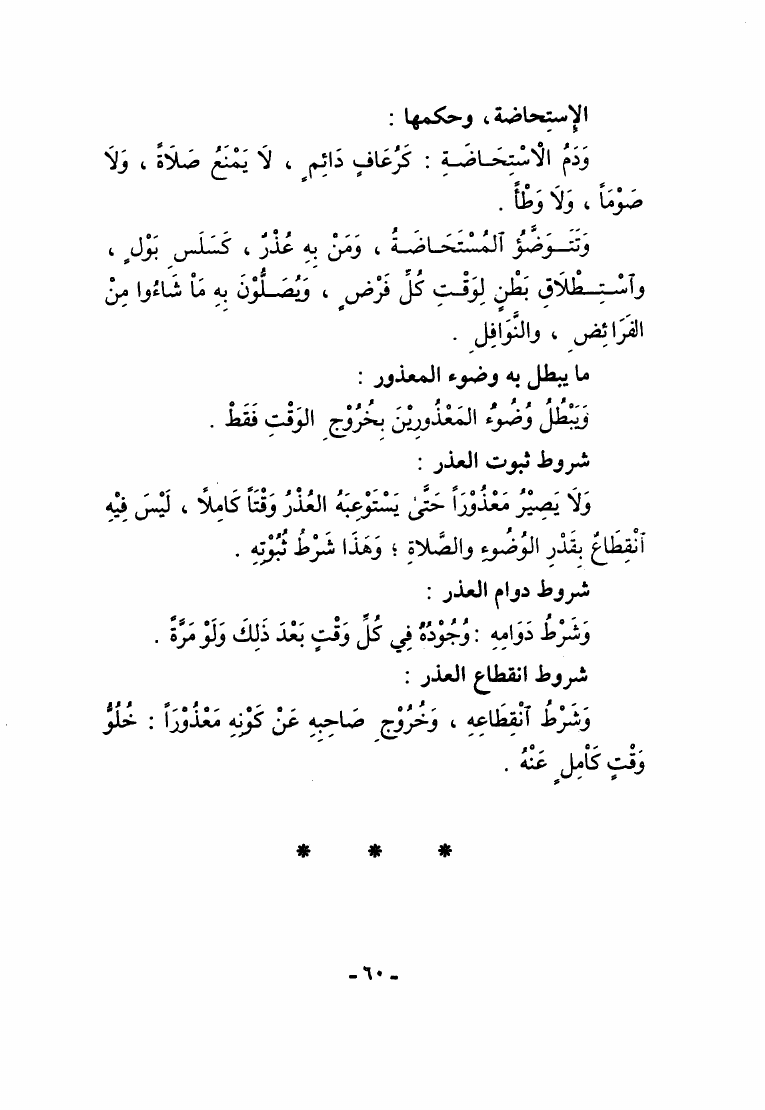 الإستحاضة، وحكمها :
وَدَمُ الْاسْتِحَاضَةِ : كَرُعَافٍ دَائِمٍ ، لَا يَمْنَعُ صَلَاةً ، وَلَا
صَوْمَاً ، وَلَا وَطْأً .
وَتَتَوَضَّؤُ ٱلمُسْتَحَاضَةُ ، وَمَنْ بِهِ عُذْرٌ ، كَسَلَسِ بَوْلٍ ،
وٱسْتِطْلَاقِ بَطْنٍ لِوَقْتِ كُلِّ فَرْضٍ ، وَيُصَلُّوْنَ بِهِ مَاْ شَاءُوا مِنْ
الفَرَائِضِ ، والنَّوَافِلِ .
ما يبطل به وضوء المعذور :
وَيَبْطُلُ وُضُوءُ المَعْذُورِيْنَ بِخُرُوْجِ الوَقْتِ فَقَطْ .
شروط ثبوت العذر :
وَلَا يَصِيْرُ مَعْذُوْرَاً حَتَّىٰ يَسْتَوْعِبَهُ العُذْرُ وَقْتَاً كَامِلًا ، لَيْسَ فِيْهِ
ٱنْقِطَاعٌ بِقَدْرِ الوُضُوءِ والصَّلاةِ ؛ وَهَذَا شَرْطُ ثُبُوْتِهِ .
شروط دوام العذر :
وَشَرْطُ دَوَامِهِ : وُجُوْدُهُ فِي كُلِّ وَقْتٍ بَعْدَ ذَلِكَ وَلَوْ مَرَّةً .
شروط انقطاع العذر :
وَشَرْطُ ٱنْقِطَاعِهِ ، وَخُرُوْجِ صَاحِبِهِ عَنْ كَوْنِهِ مَعْذُوْرَاً : خُلُوُّ
وَقْتٍ كَاْمِلٍ عَنْهُ .
* * *
- ٦٠ -